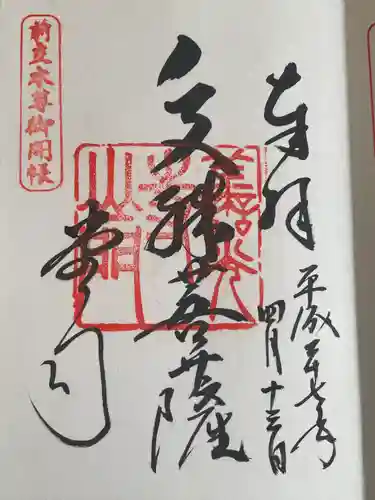 奉拝
平成二十七年
四月十三日
文殊菩薩
堂司
前立本尊御開帳